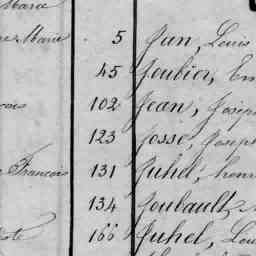 Marie
Marie 5 Jan, Louis
45 Joubier, Em
102 Jean, Joseph
123 Josse, Joseph
François 131 Juhel, Henri
134 Joubault,
166 Juhel, Lou